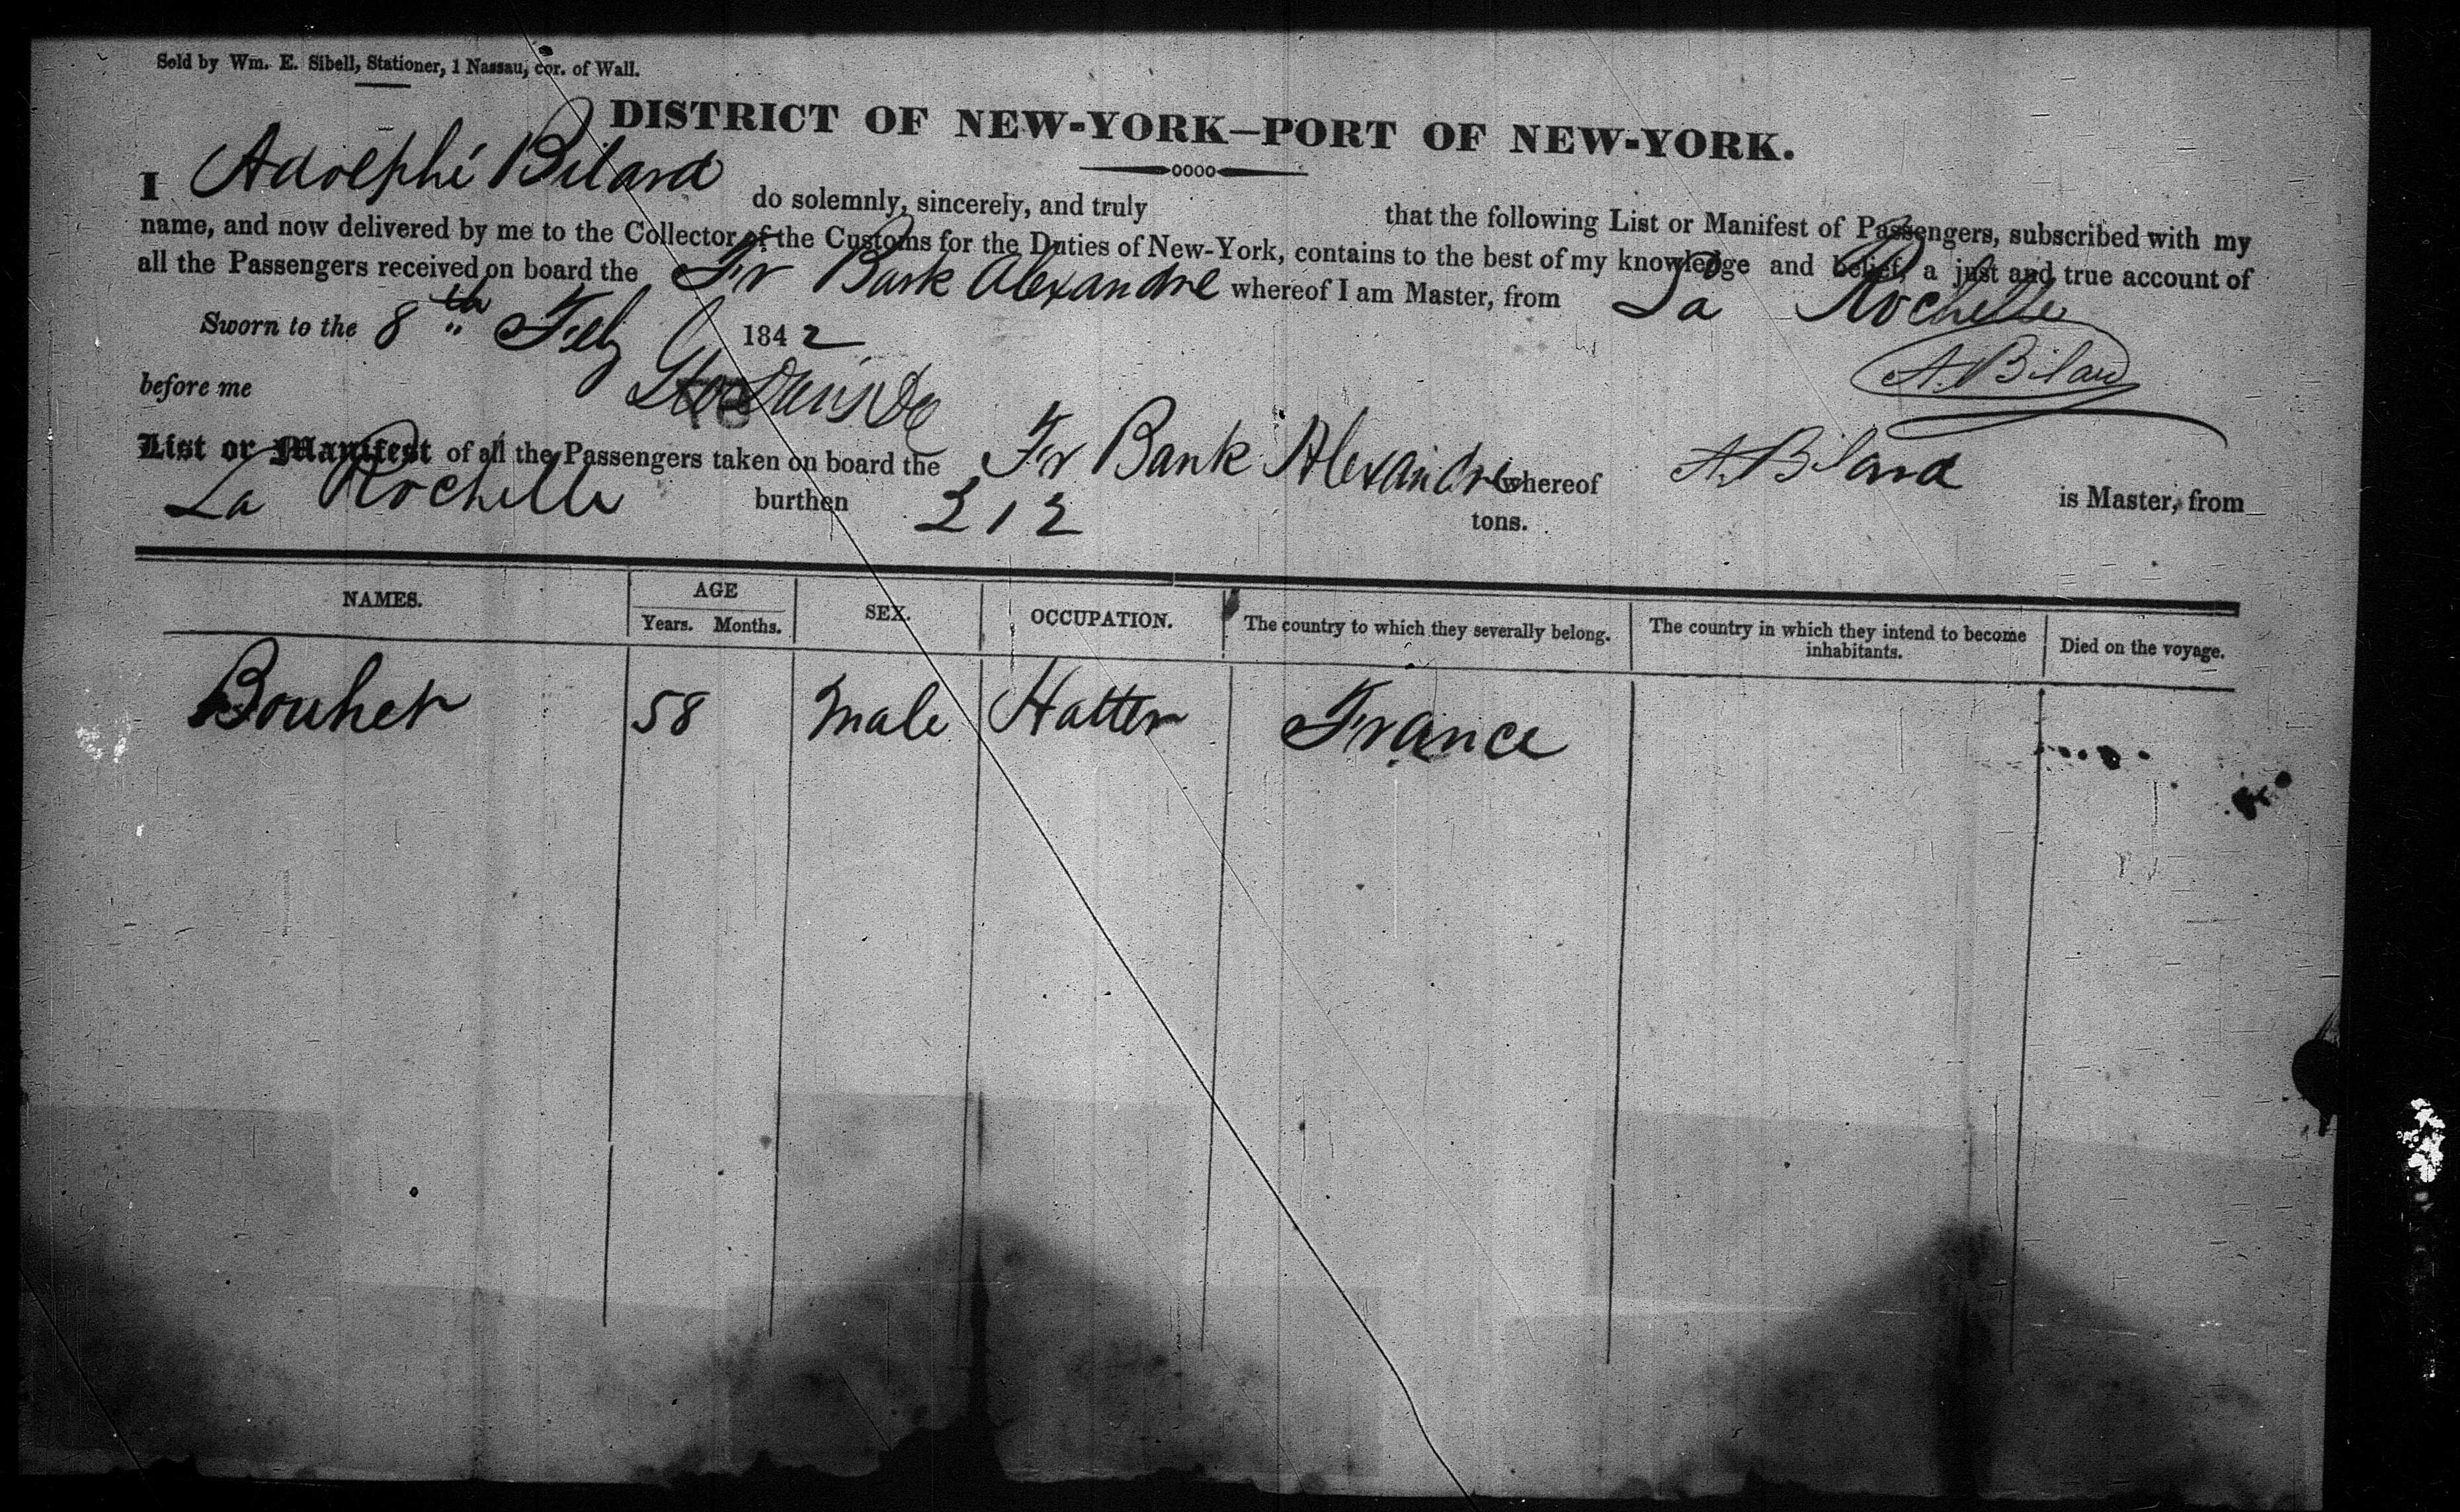 Sold by Wm. E. Sibell, Stationer, 1 Nassau, cor. of Wall.
DISTRICT OF NEW-YORK—PORT OF NEW-YORK.
I Adolphe Bilard do solemnly, sincerely, and truly that the following List or Manifest of Passengers, subscribed with my
name, and now delivered by me to the Collector of the Customs for the Duties of New-York, contains to the best of my knowledge and belief, a just and true account of
all the Passengers received on board the Fr Bark Alexandre whereof I am Master, from La Rochelle
Sworn to the 8th Feby 1842
A. Bilard
before me
List or Manifest of all the Passengers taken on board the Fr Bark Alexandre whereof A. Bilard is Master, from
La Rochelle burthen 212 tons.
NAMES. AGE Years. Months. SEX. OCCUPATION. The country to which they severally belong. The country in which they intend to become inhabitants. Died on the voyage.
Bouher 58 Male Hatter France